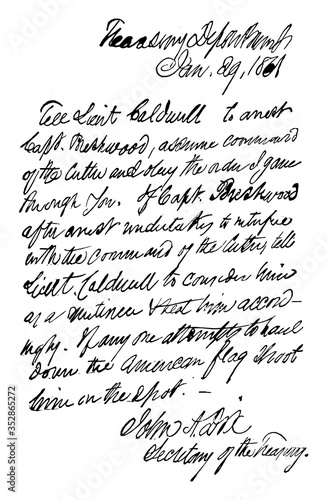 Treasury Department
Jan. 29, 1861
Tell Lieut Caldwell to arrest
Capt. Breshwood, assume command
of the Cutter and obey the order I gave
through you. If Capt. Breshwood
after arrest undertakes to interfere
with the command of the Cutter tell
Lieut. Caldwell to consider him
as a mutineer & treat him accord-
ingly. If any one attempts to haul
down the American flag shoot
him on the spot. —
John A. Dix
Secretary of the Treasury.
Adobe Stock | #352865272